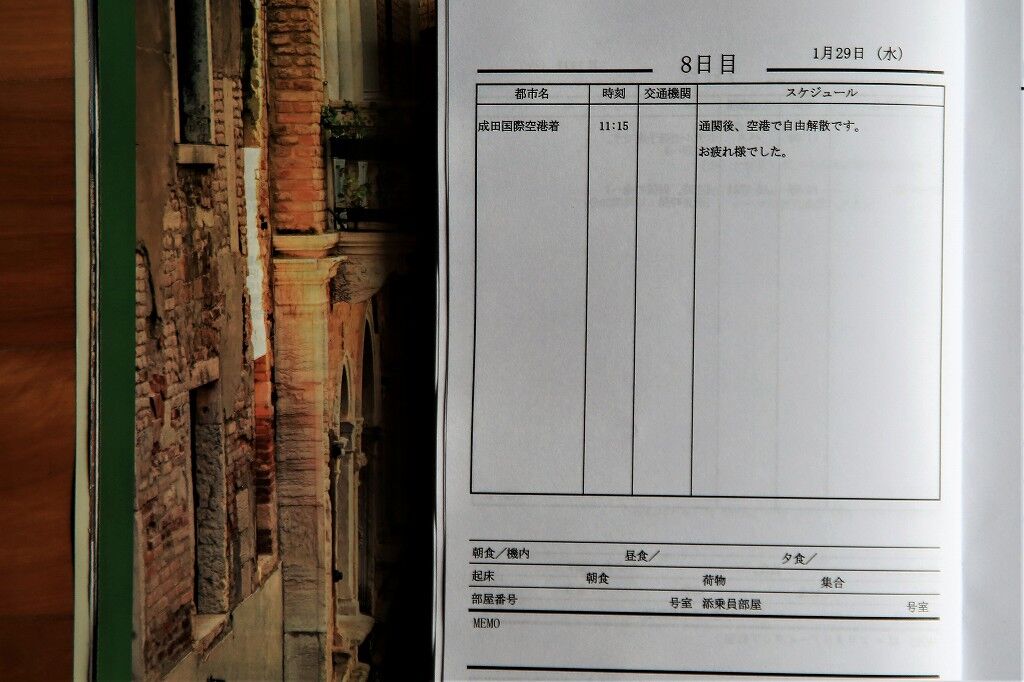 8日目 1月29日 （水）
都市名 時刻 交通機関 スケジュール
成田国際空港着 11:15 通関後、空港で自由解散です。
お疲れ様でした。
朝食／機内 昼食／ 夕食／
起床 朝食 荷物 集合
部屋番号 号室 添乗員部屋 号室
MEMO